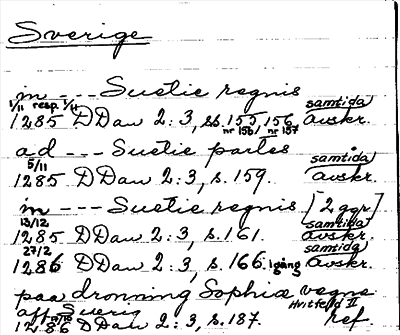 Sverige
in --- Suetie regnis
1/11 resp. 1/11 samtida
1285 DDan 2:3, ss. 155, 156 avskr.
nr 156/ nr 157
ad --- Suetie partes
5/11 samtida
1285 DDan 2:3, s. 159. avskr.
in --- Suetie regnis [2 ggr]
13/12 samtida
1285 DDan 2:3, s. 161. avskr.
27/2 samtida
1286 DDan 2:3, s. 166. 1 gång avskr.
paa dronning Sophiæ vegne
aff Sverig Hvitfeld II
1286 DDan 2:3, s. 187. ref.